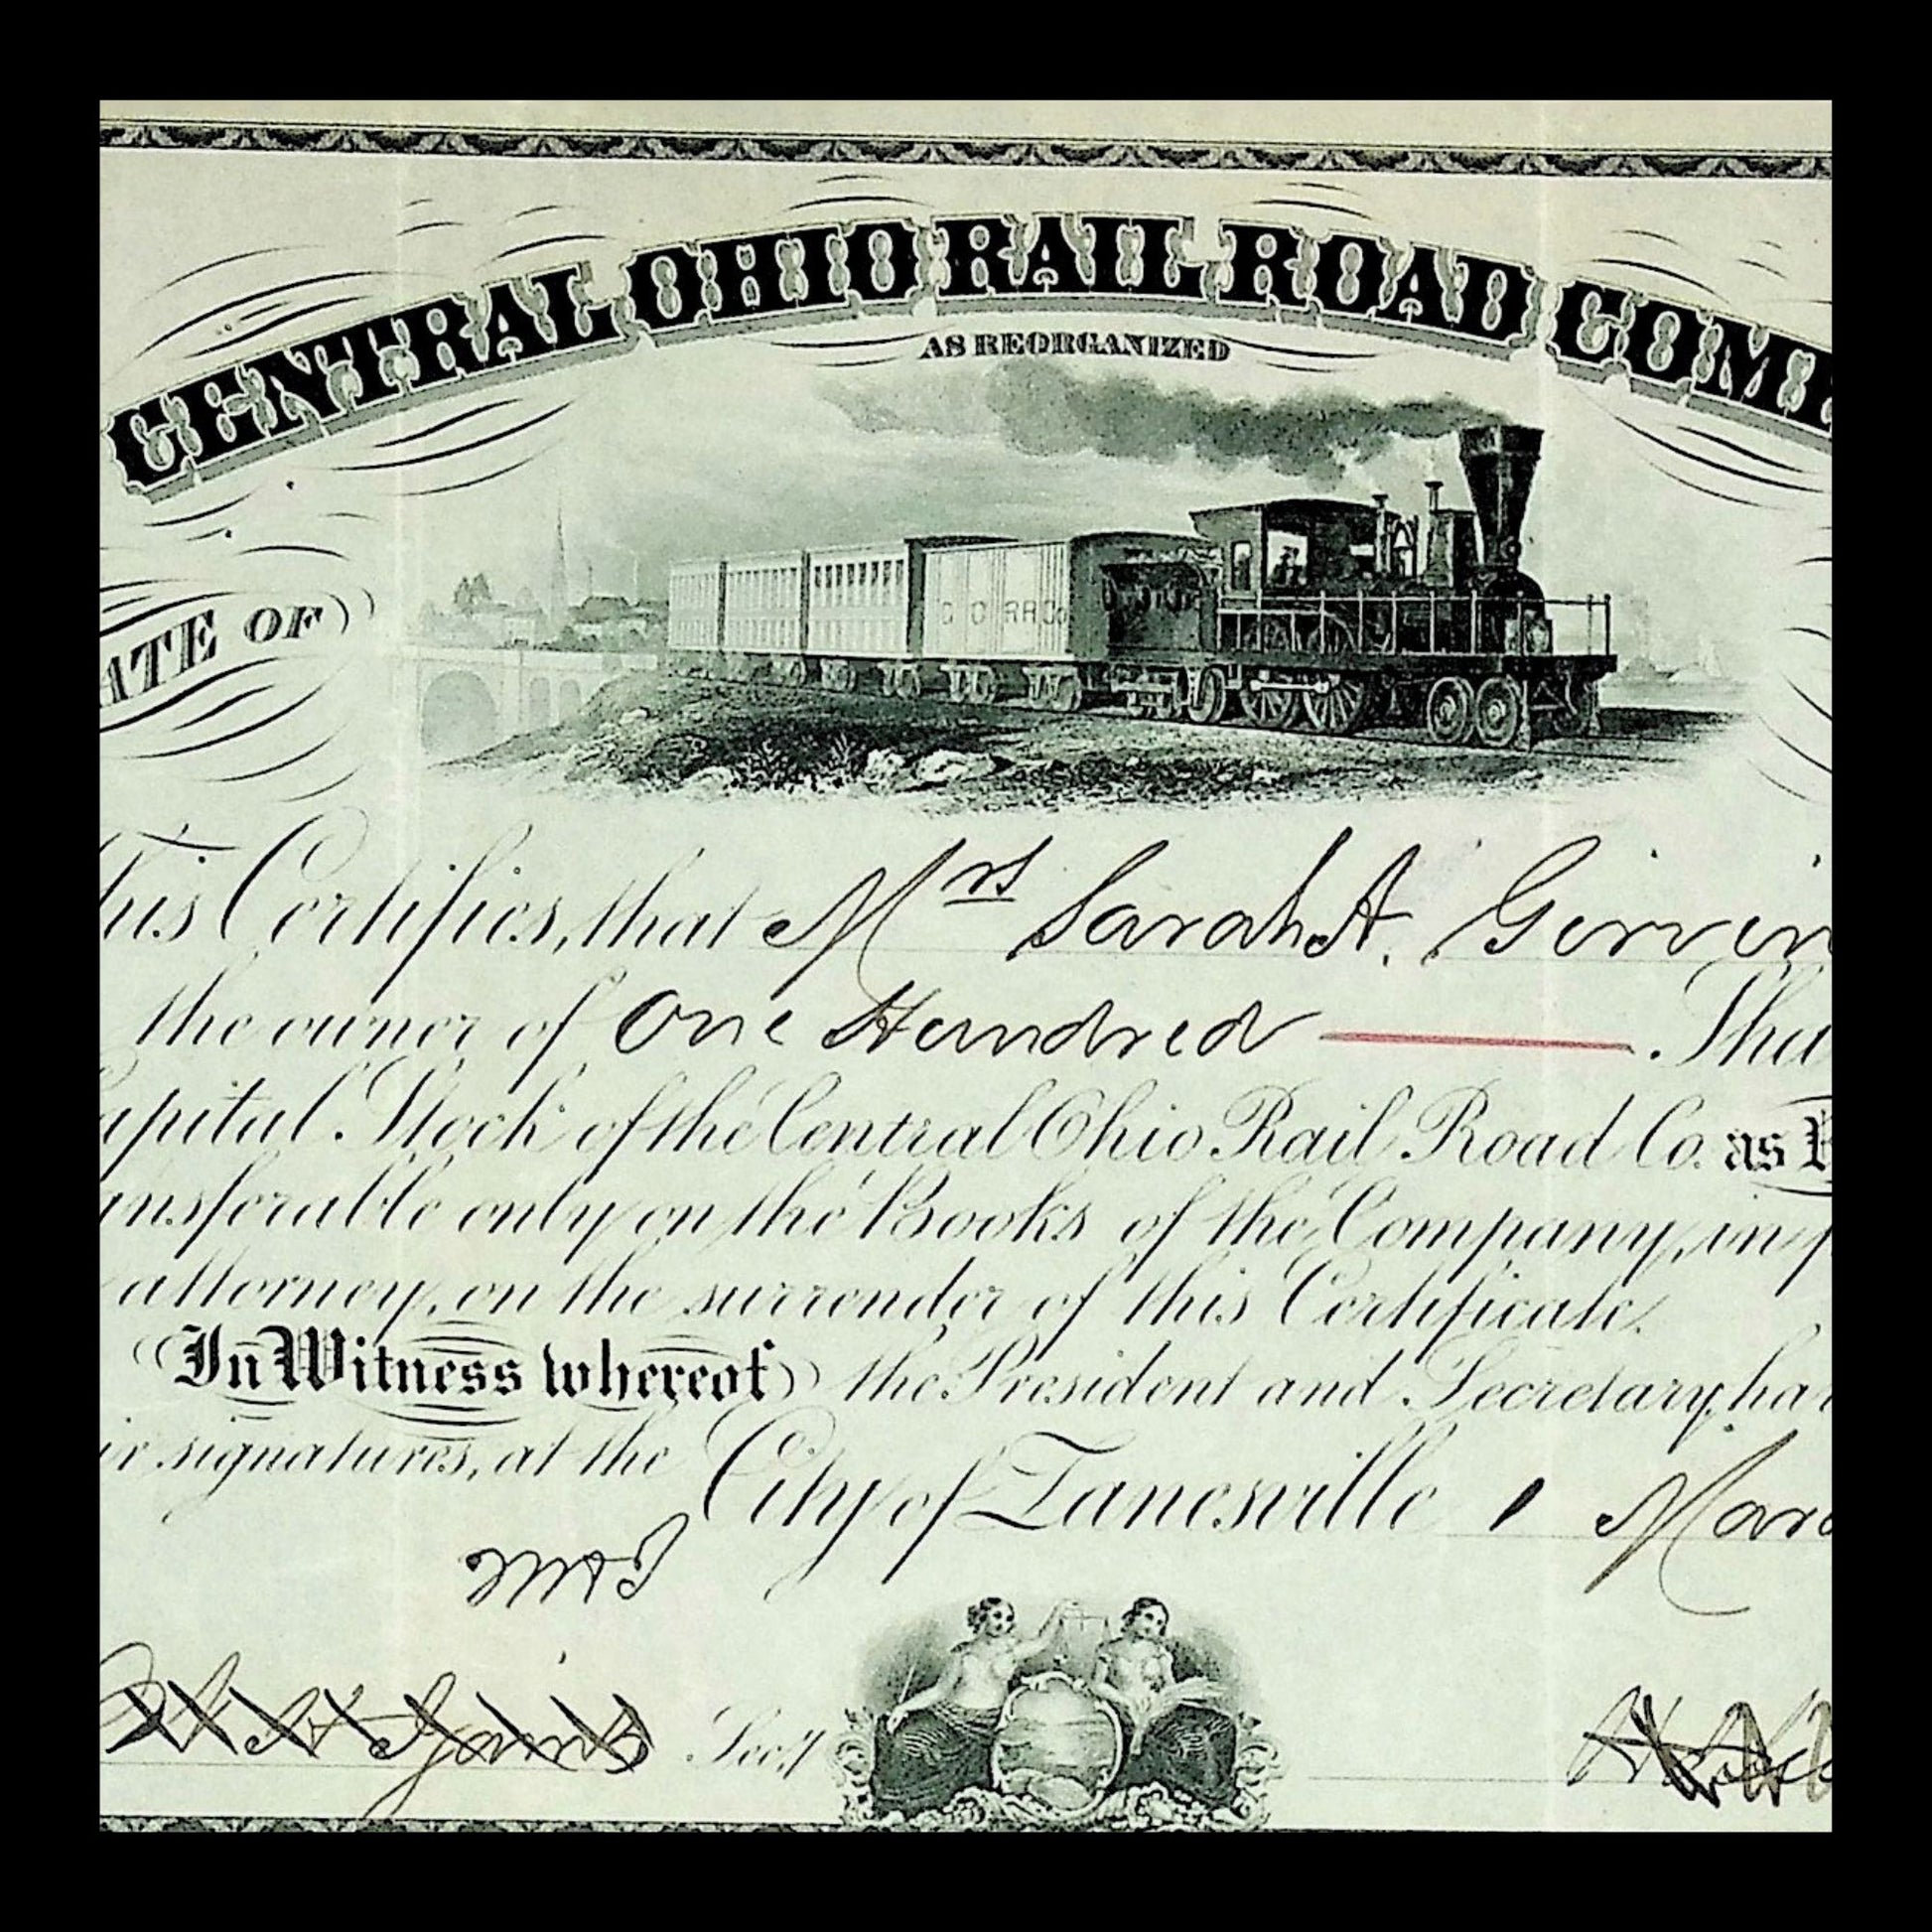 CENTRAL OHIO RAIL ROAD COMP
AS REORGANIZED
C O RR Co
ATE OF
This Certifies, that Mrs Sarah A. Girvin
the owner of One Hundred Sha
apital Stock of the Central Ohio Rail Road Co. as R
ansferable only on the Books of the Company, in p
attorney, on the surrender of this Certificate.
In Witness whereof the President and Secretary, ha
ir signatures, at the City of Zanesville 1 Marc
Sec.y